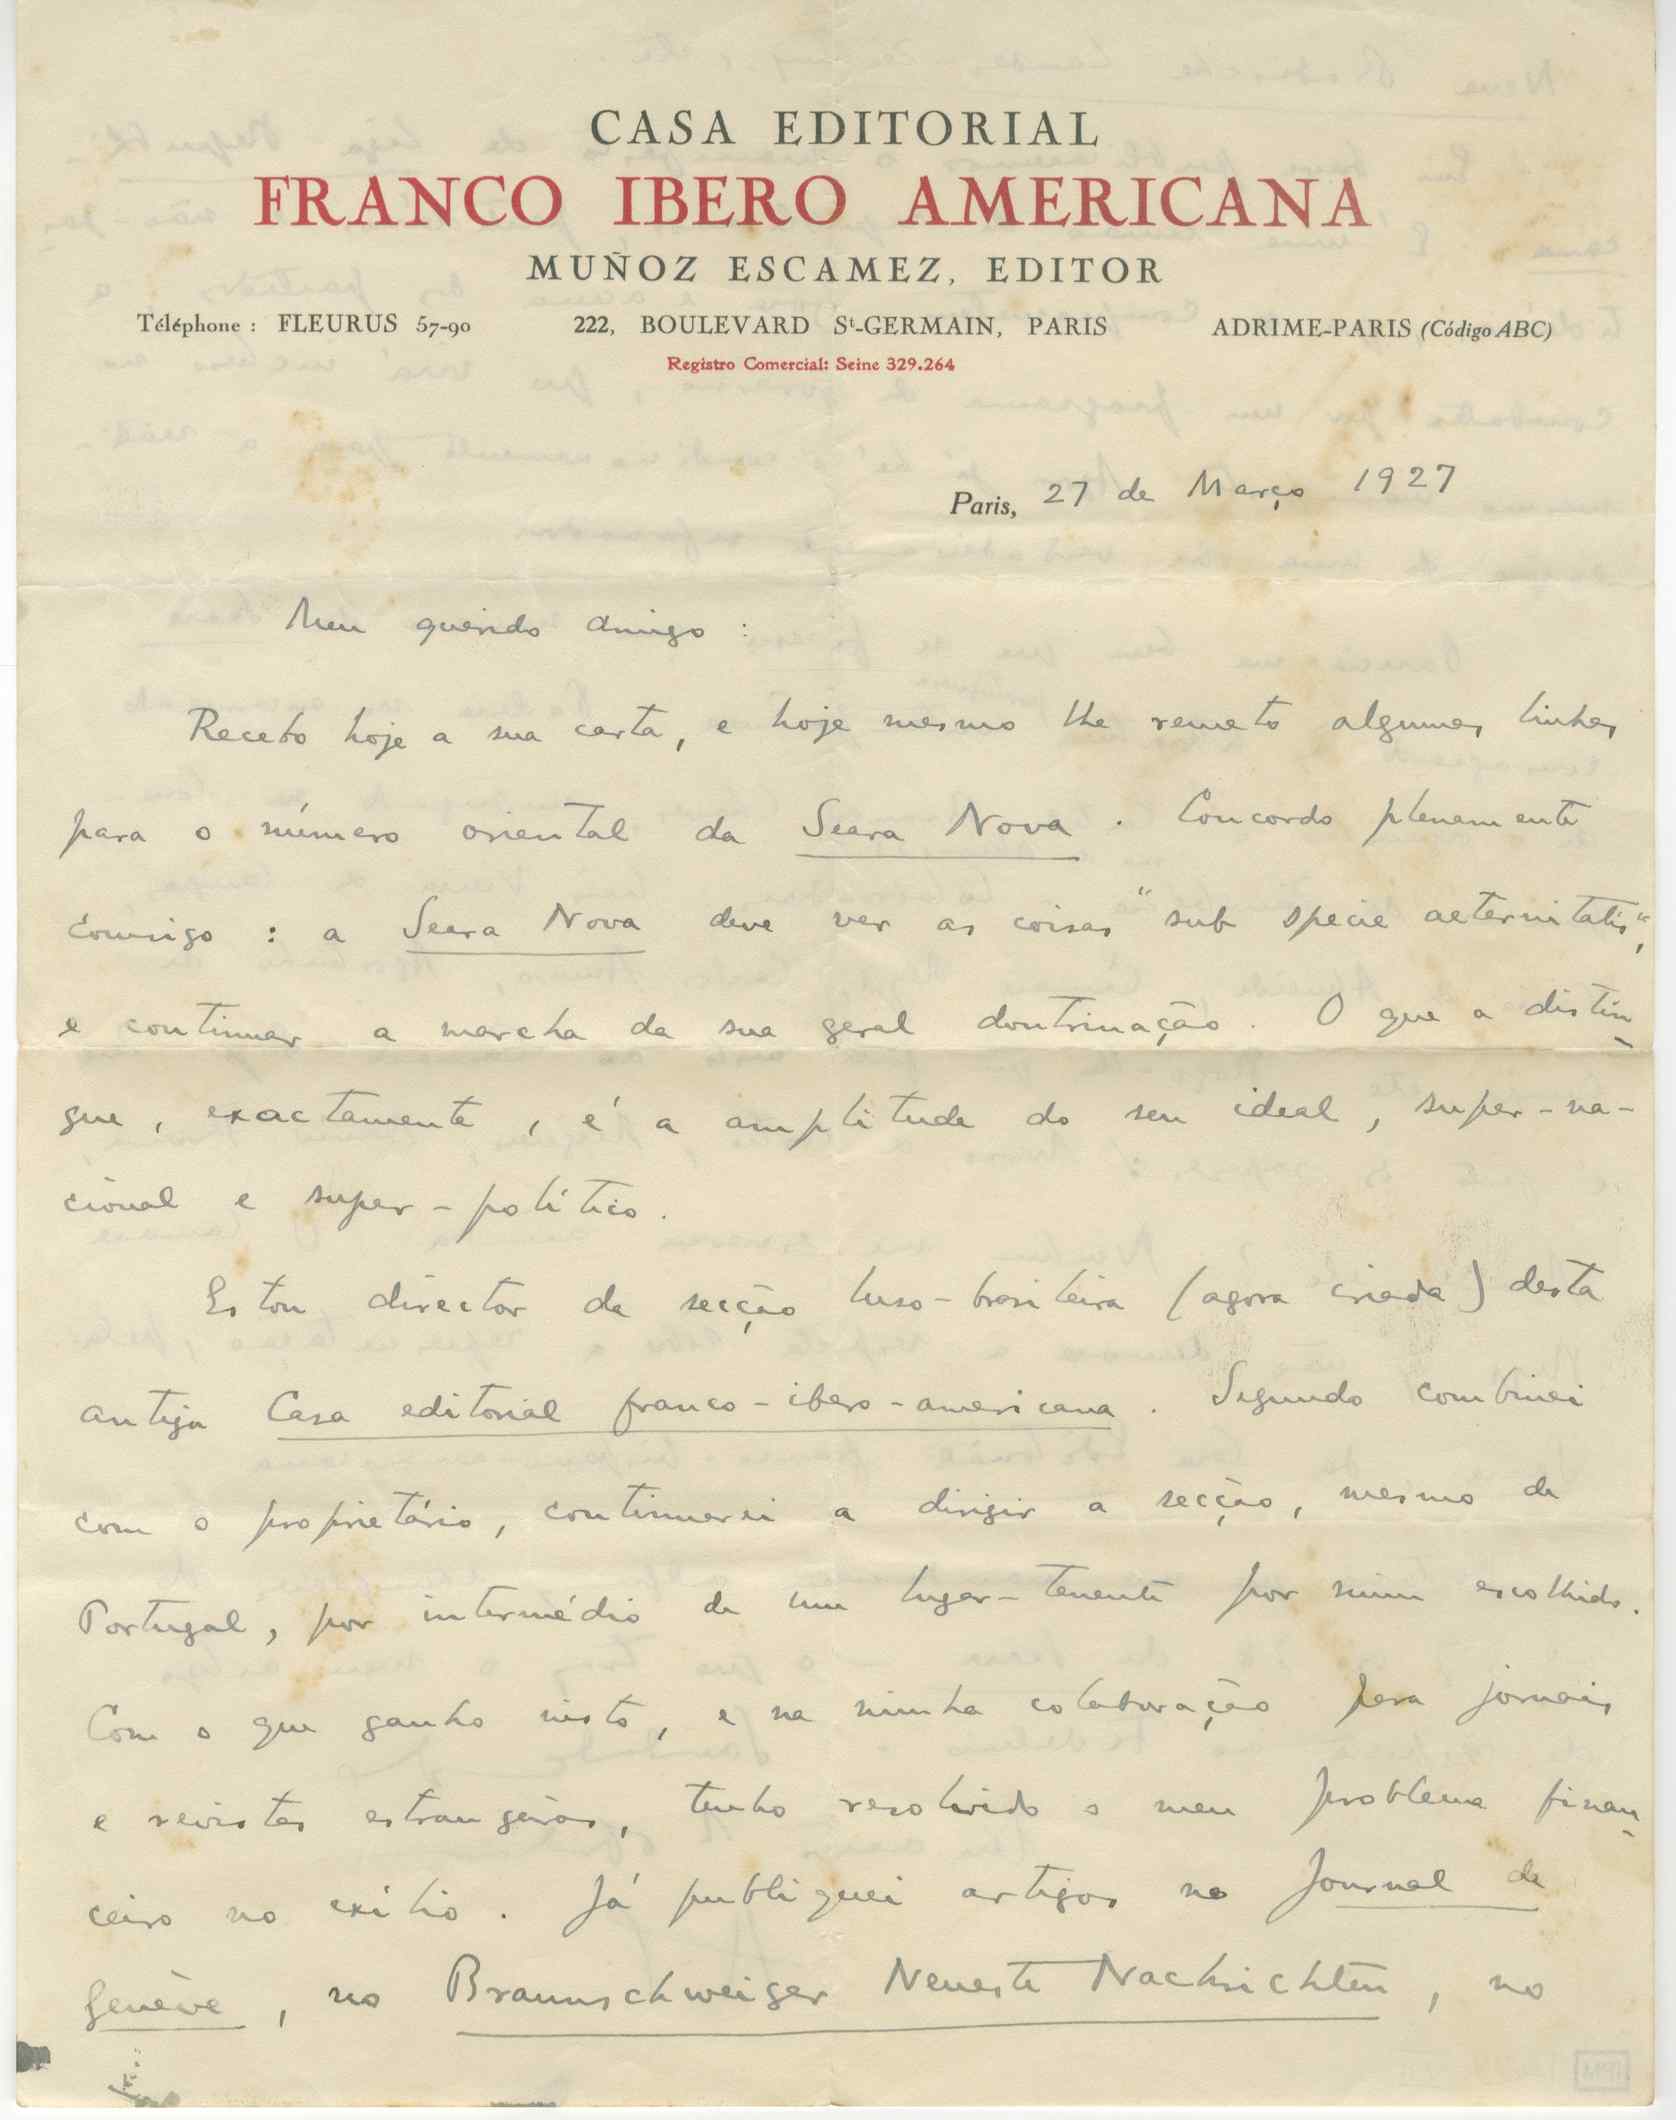 CASA EDITORIAL
FRANCO IBERO AMERICANA
MUÑOZ ESCAMEZ, EDITOR
Téléphone : FLEURUS 57-90 222, BOULEVARD St-GERMAIN, PARIS ADRIME-PARIS (Código ABC)
Registro Comercial: Seine 329.264
Paris, 27 de Março 1927
Meu querido amigo :
Recebo hoje a sua carta, e hoje mesmo lhe remeto algumas linhas
para o número oriental da Seara Nova . Concordo plenamente
comigo : a Seara Nova deve ver as coisas "sub specie aeternitatis",
e continuar a marcha da sua geral doutrinação . O que a distin-
gue , exactamente , é a amplitude do seu ideal , super-na-
cional e super-político .
Estou director da secção luso-brasileira (agora criada) desta
antiga Casa editorial franco-ibero-americana . Segundo combinei
com o proprietário, continuarei a dirigir a secção, mesmo de
Portugal, por intermédio de um lugar-tenente por mim escolhido.
Com o que ganho nisto, e na minha colaboração para jornais
e revistas estrangeiras, tenho resolvido o meu problema finan-
ceiro no exílio . Já publiquei artigos no Journal de
Genève , no Braunschweiger Neueste Nachrichten , no